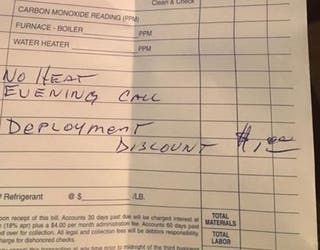 Clean & Check
CARBON MONOXIDE READING (PPM)
FURNACE - BOILER PPM
WATER HEATER PPM
NO HEAT
EVENING CALL
DEPLOYMENT
DISCOUNT $1.00
Refrigerant @ $ /LB.
TOTAL MATERIALS
TOTAL LABOR
on receipt of this bill. Accounts 30 days past due will be charged interest at
(18% apr) plus a $4.00 per month administration fee. Accounts 60 days past
over for collection. All legal and collection fees will be debtors responsibility.
charge for dishonored checks.